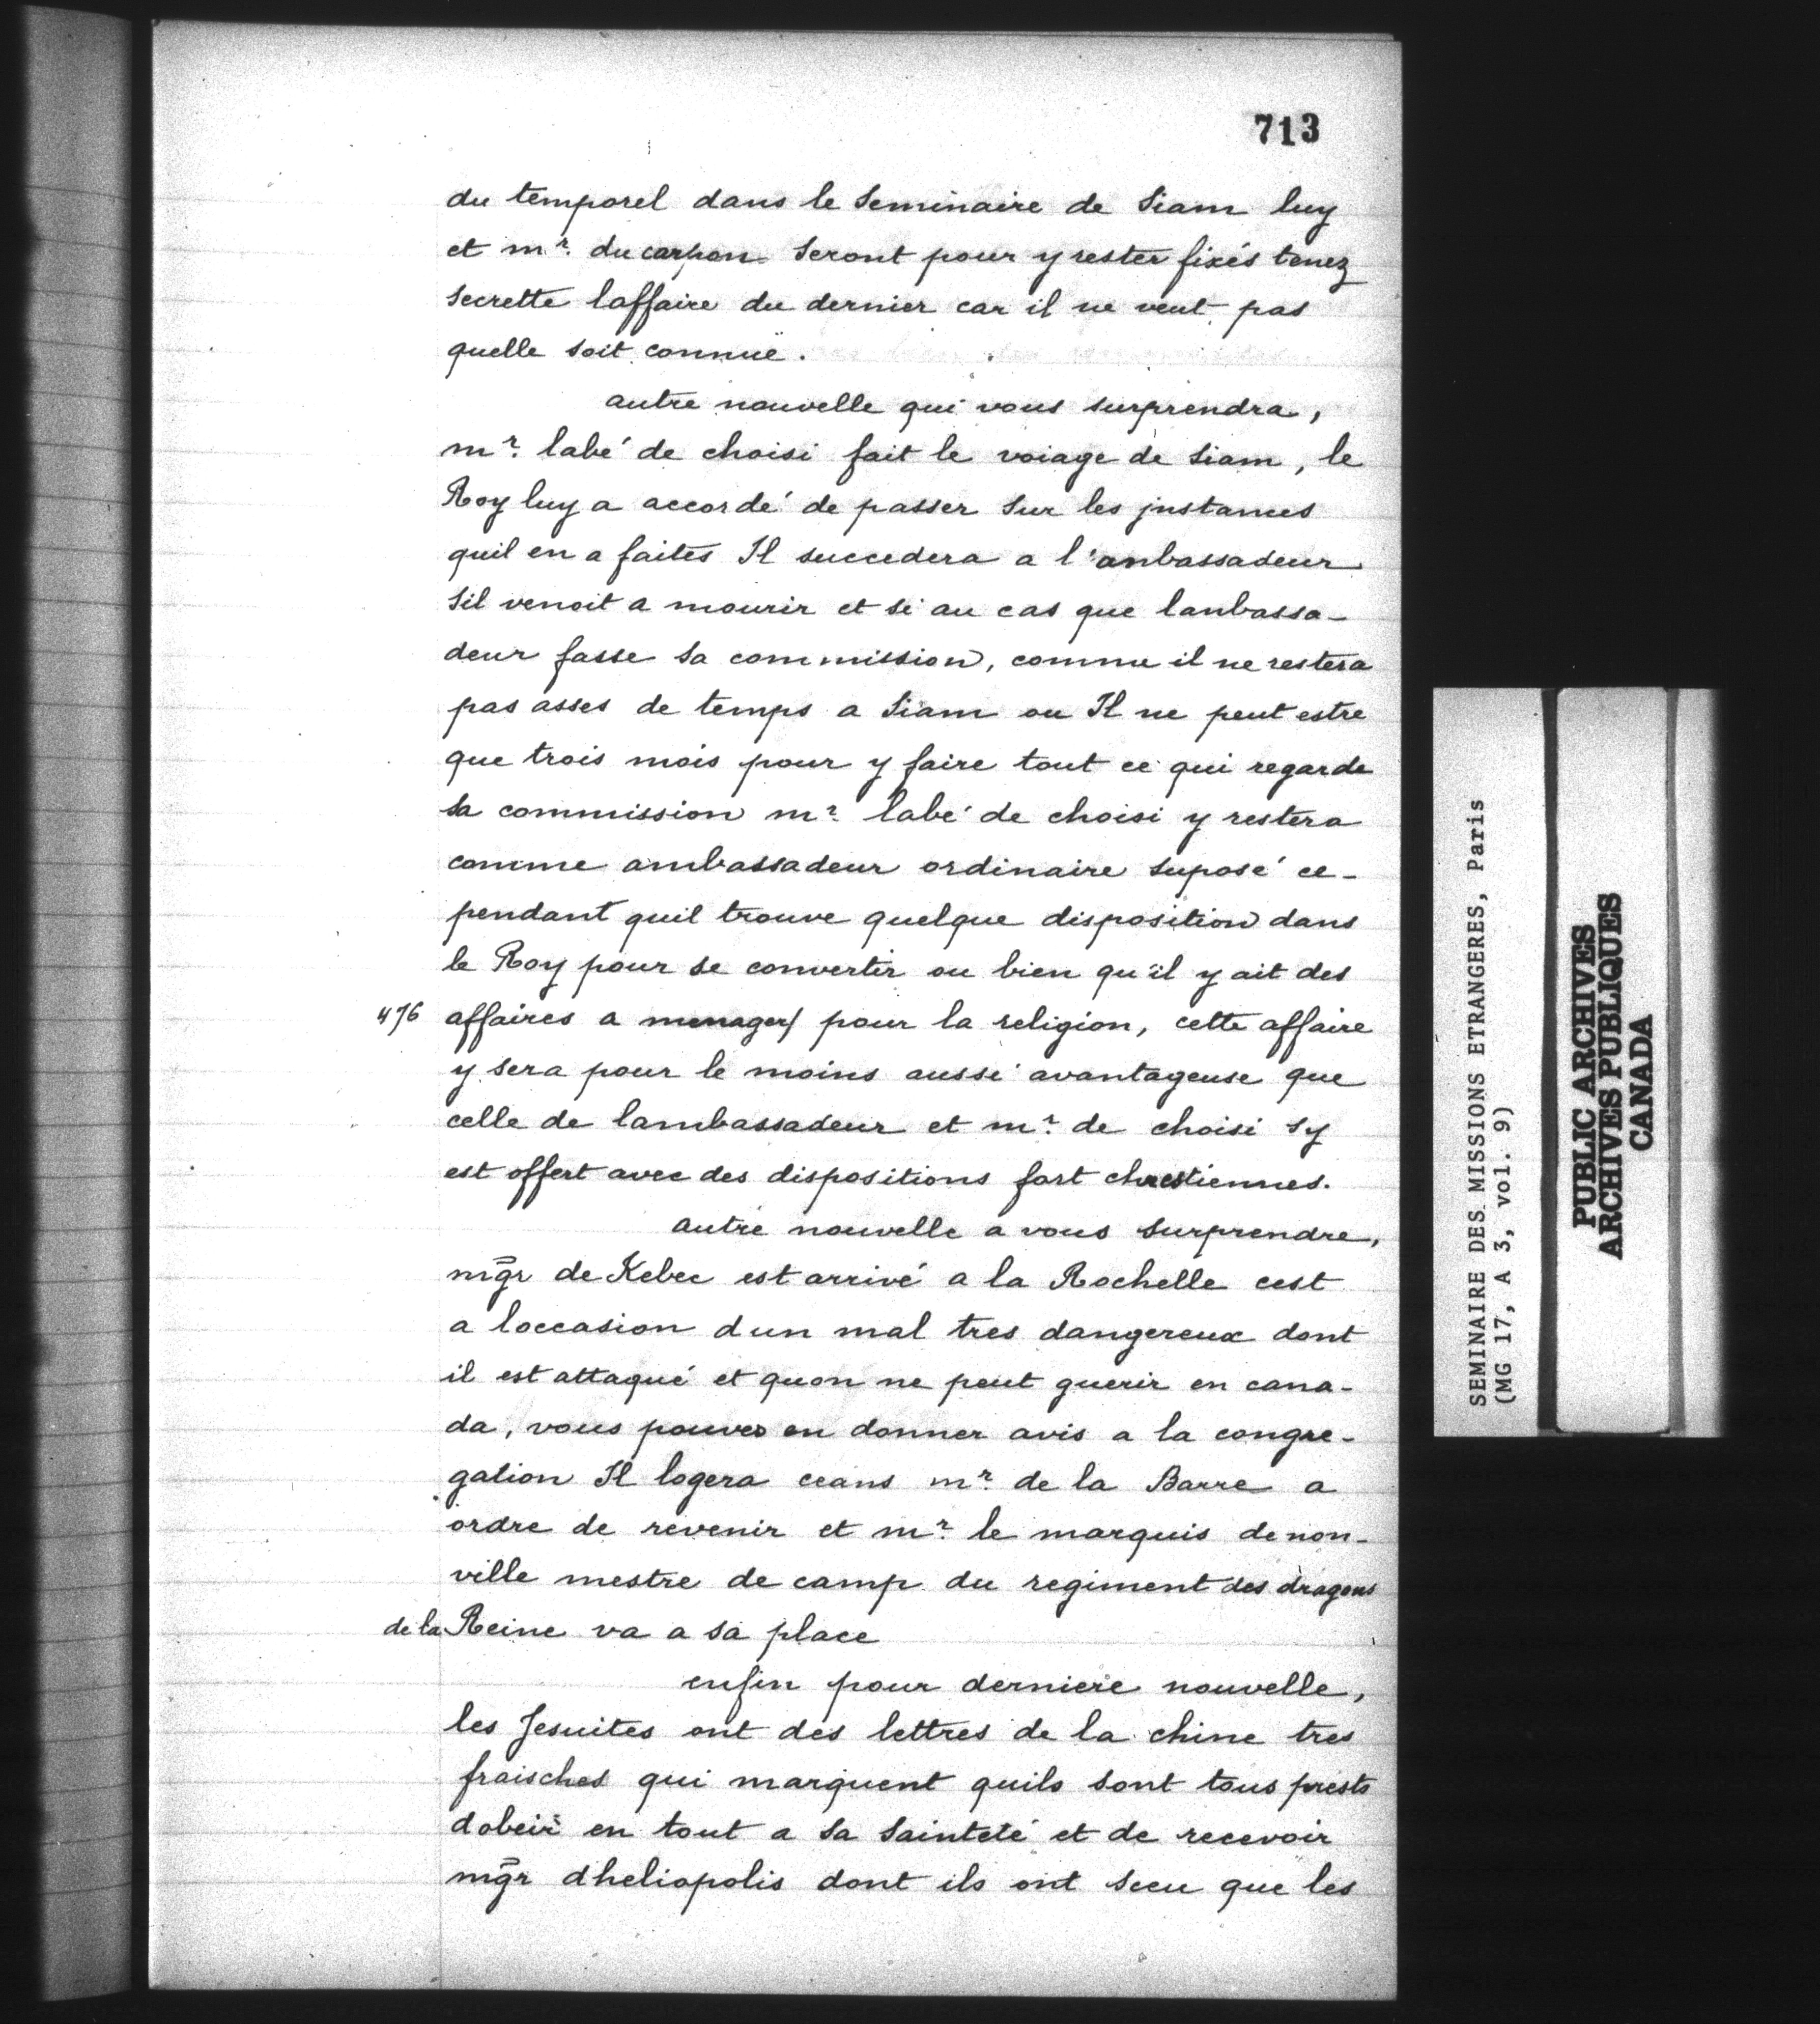 713
du temporel dans le Seminaire de Siam luy
et mr. du carpon Seront pour y rester fixés tenez
secrette laffaire du dernier car il ne veut pas
quelle soit connuë.
autre nouvelle qui vous surprendra,
mr. labé de choisi fait le voiage de Siam, le
Roy luy a accordé de passer Sur les jnstances
quil en a faites Il succedera a l'anbassadeur
Sil venoit a mourir et si au cas que lanbassa-
deur fasse sa commission, comme il ne restera
pas asses de temps a Siam ou Il ne peut estre
que trois mois pour y faire tout ce qui regarde
sa commission mr. labé de choisi y restera
comme ambassadeur ordinaire suposé ce-
pendant quil trouve quelque disposition dans
le Roy pour se convertir ou bien qu'il y ait des
476 affaires a menager/ pour la religion, cette affaire
y sera pour le moins aussi avantageuse que
celle de lambassadeur et mr. de choisi sy
est offert avec des dispositions fort chrestiennes.
autre nouvelle a vous surprendre,
mgr de Kebec est arrivé a la Rochelle cest
a loccasion dun mal tres dangereux dont
il est attaqué et quon ne peut guerir en cana-
da, vous pouves en donner avis a la congre-
gation Il logera ceans mr. de la Barre a
ordre de revenir et mr. le marquis denon-
ville mestre de camp du regiment des dragons
de la Reine va a sa place
enfin pour derniere nouvelle,
les Jesuites ont des lettres de la chine tres
fraisches qui marquent quils sont tous prests
dobeir en tout a sa Sainteté et de recevoir
mgr dheliopolis dont ils ont sceu que les
SEMINAIRE DES MISSIONS ETRANGERES, Paris
(MG 17, A 3, vol. 9)
PUBLIC ARCHIVES
ARCHIVES PUBLIQUES
CANADA